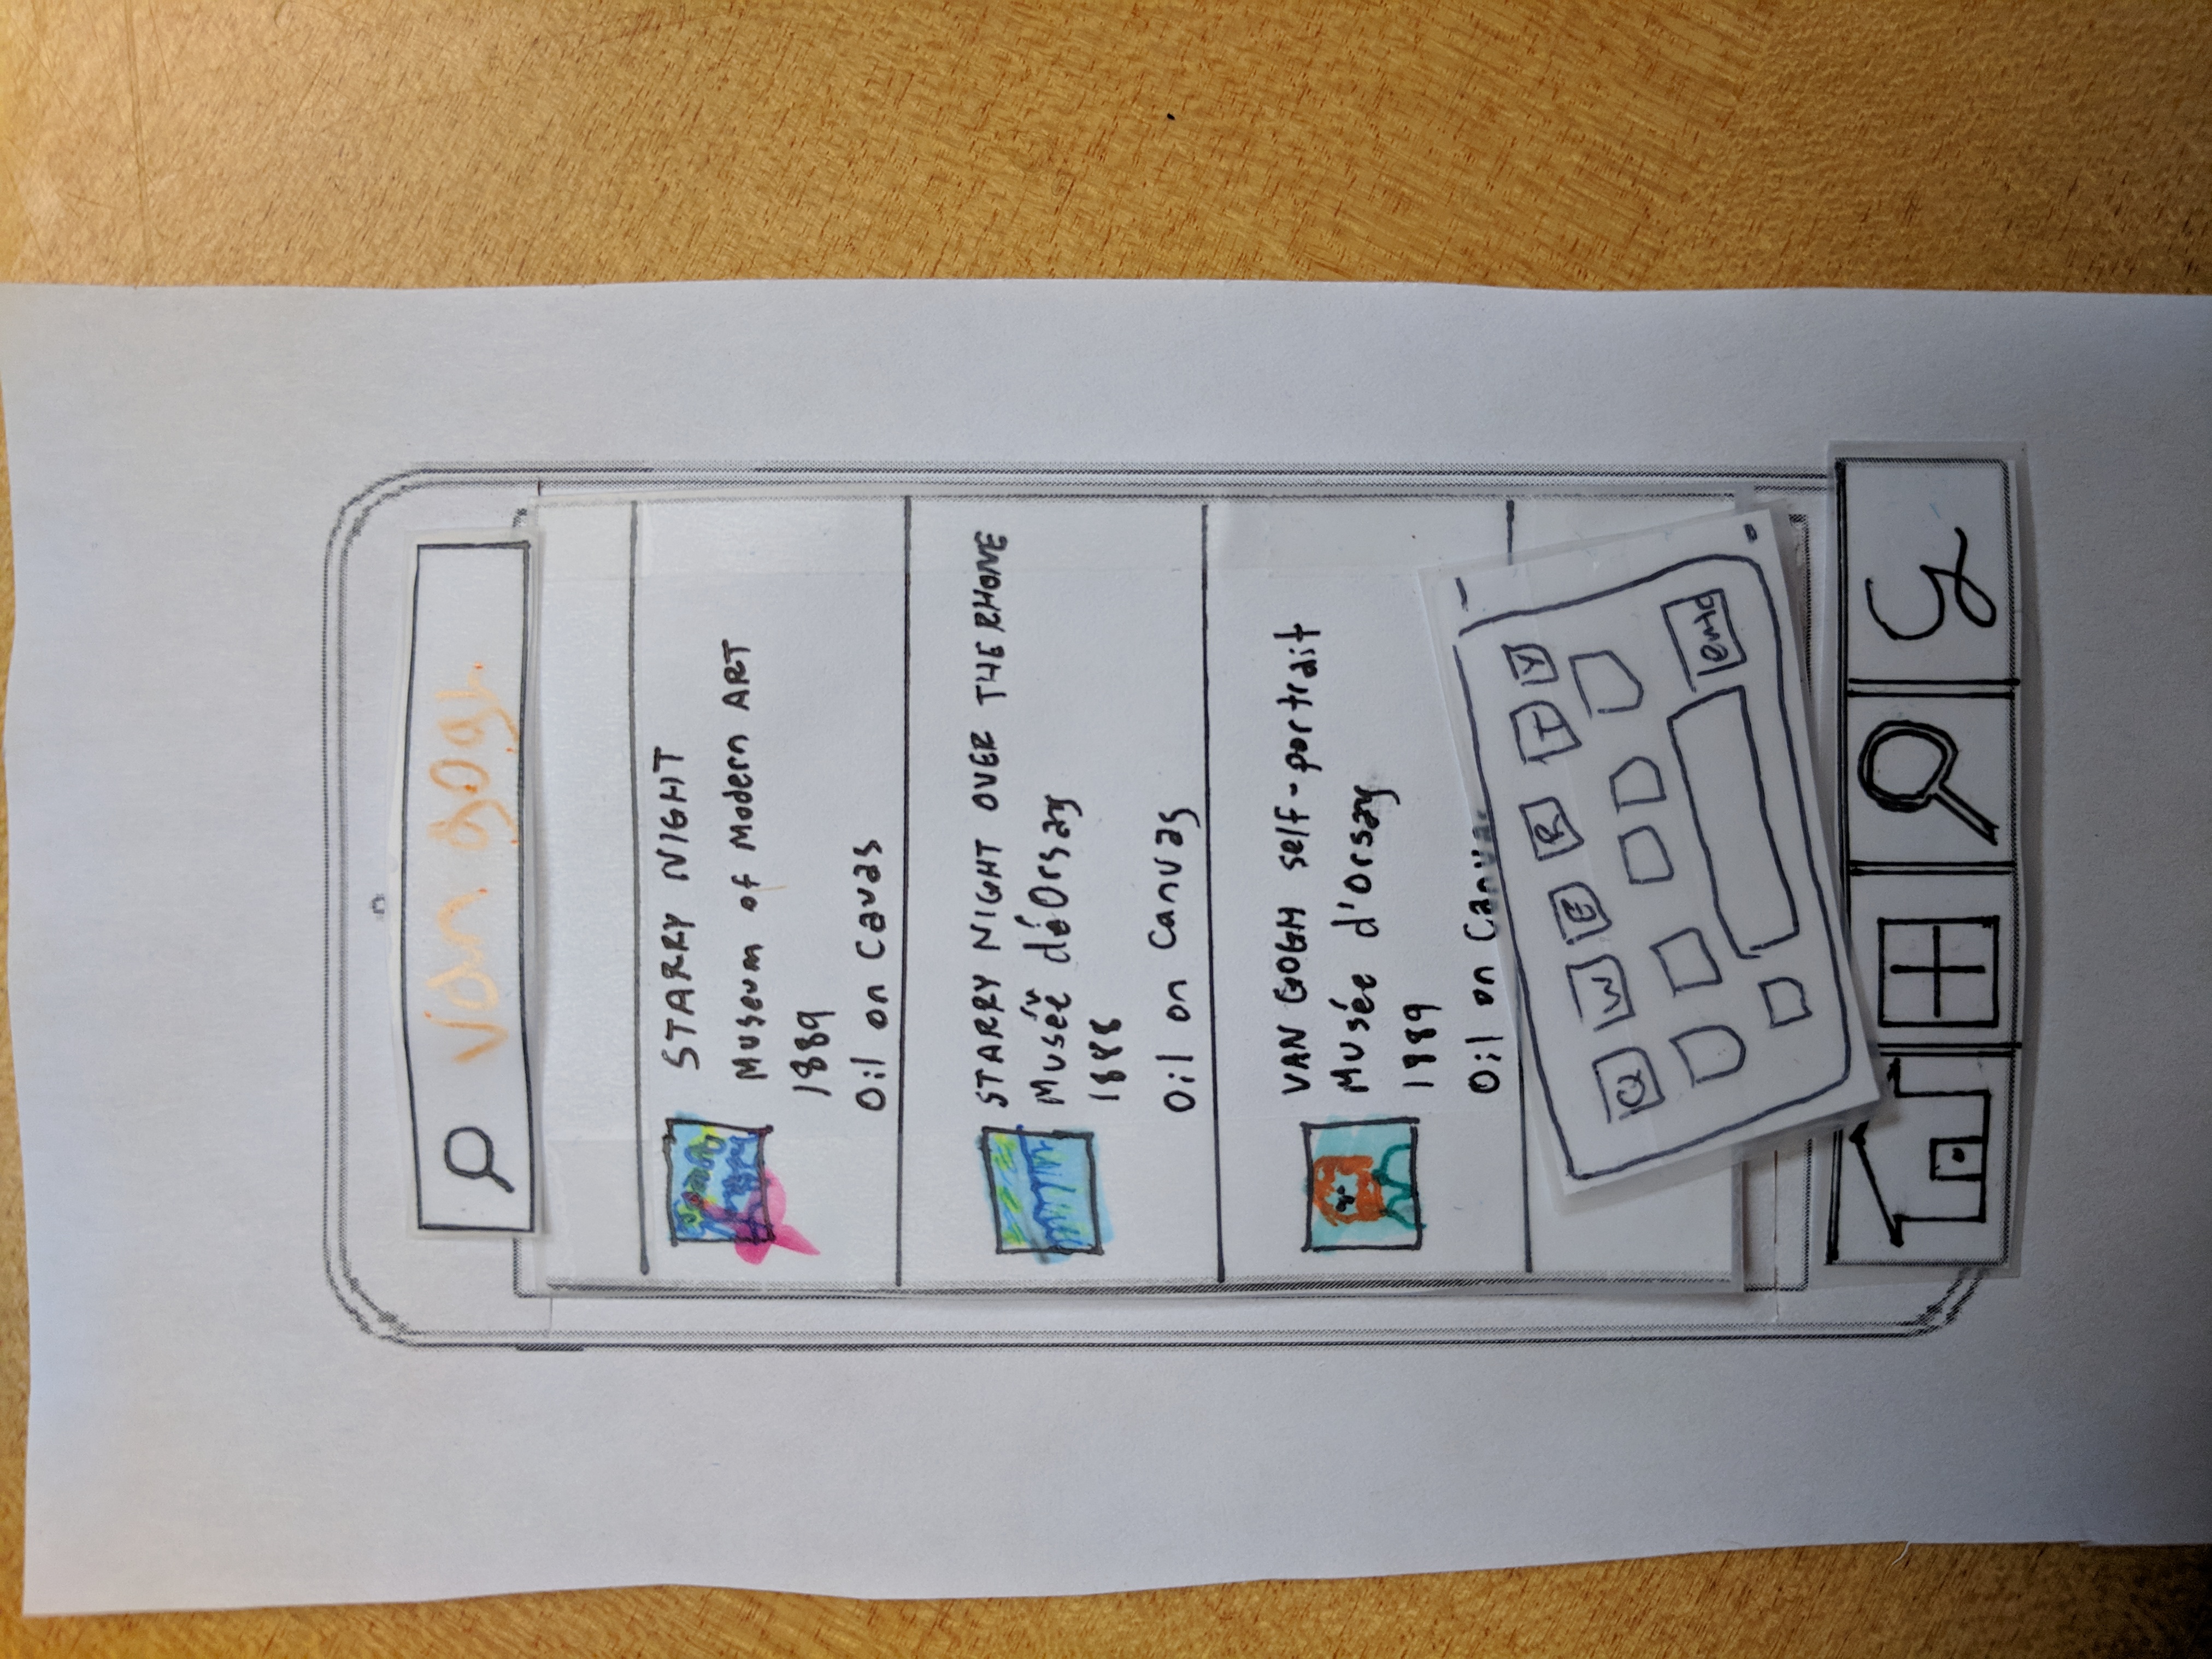 van gogh
STARRY NIGHT
Museum of Modern ART
1889
Oil on Cavas
STARRY NIGHT OVER THE RHONE
Musée déOrsay
1888
Oil on Canvas
VAN GOGH self-portrait
Musée d'Orsay
1889
Oil on Canva
Q W E R T Y
enter